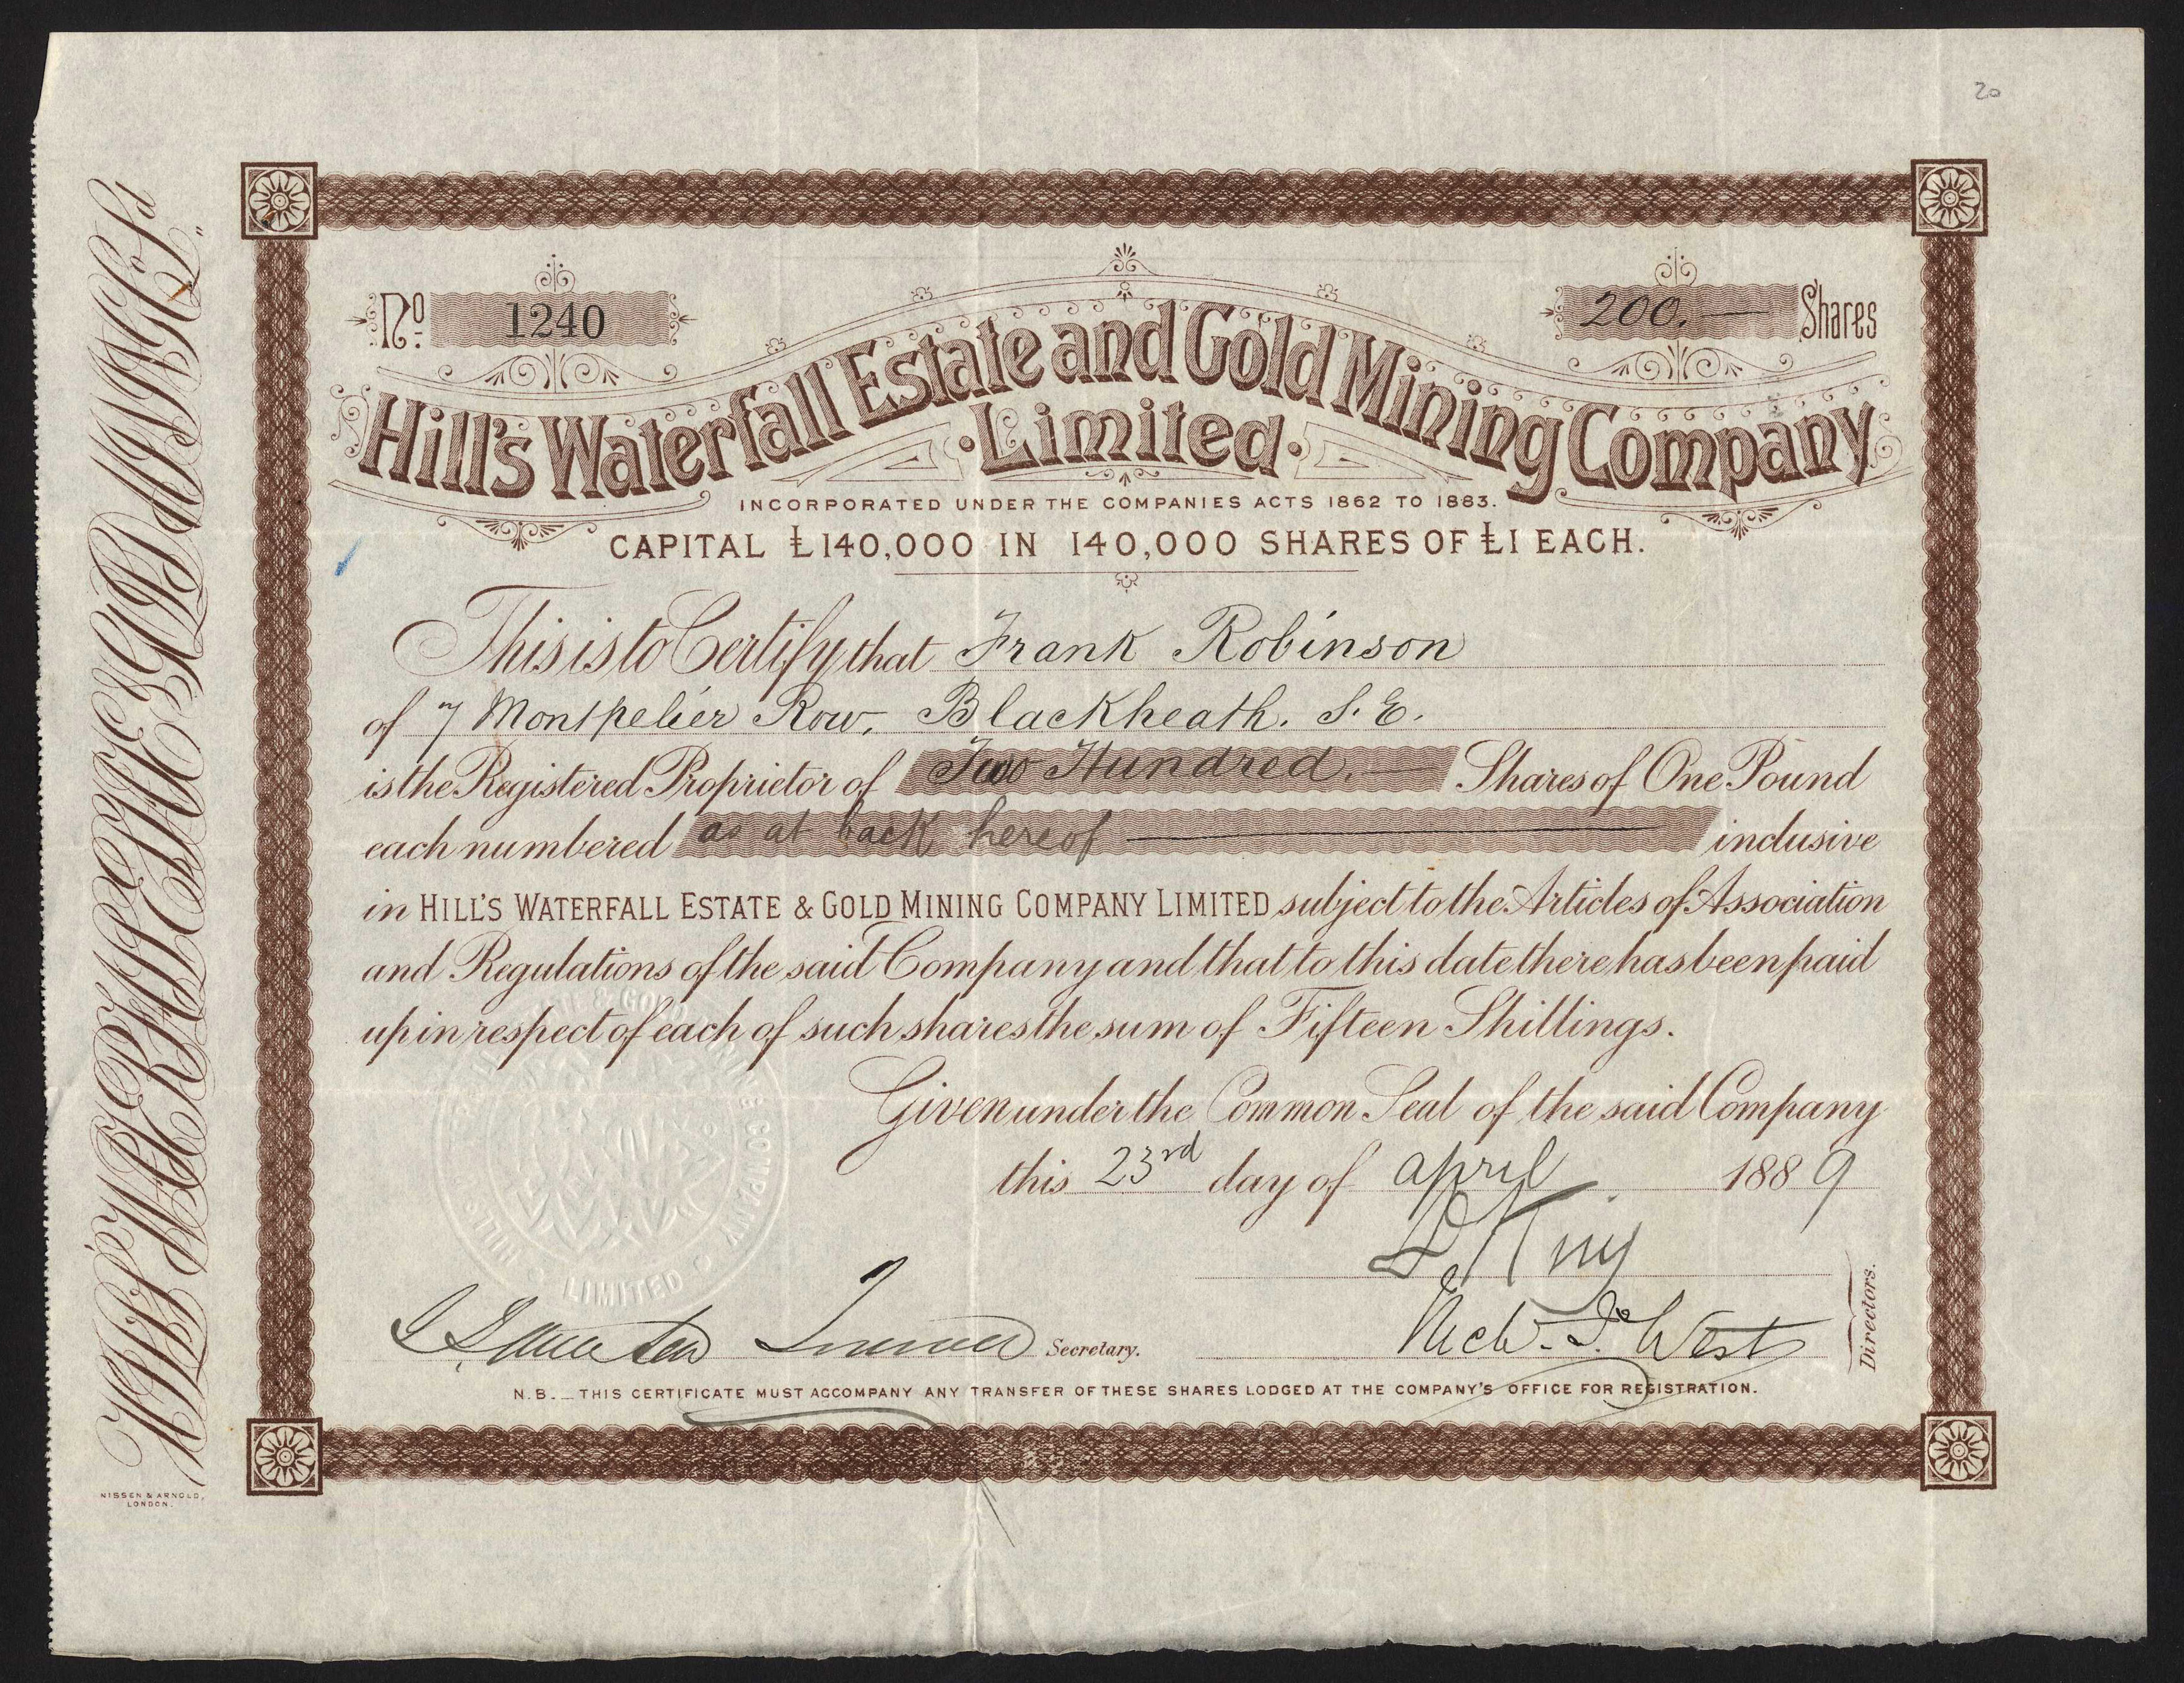 20
No. 1240
200. Shares
Hill's Waterfall Estate and Gold Mining Company
Limited.
INCORPORATED UNDER THE COMPANIES ACTS 1862 TO 1883.
CAPITAL £140,000 IN 140,000 SHARES OF £1 EACH.
This is to Certify that Frank Robinson
of 7 Montpelier Row, Blackheath. S.E.
is the Registered Proprietor of Two Hundred. Shares of One Pound
each numbered as at back hereof inclusive
in HILL'S WATERFALL ESTATE & GOLD MINING COMPANY LIMITED subject to the Articles of Association
and Regulations of the said Company and that to this date there has been paid
up in respect of each of such shares the sum of Fifteen Shillings.
Given under the Common Seal of the said Company
this 23rd day of april 1889
King
West
Directors.
Secretary.
N.B._THIS CERTIFICATE MUST ACCOMPANY ANY TRANSFER OF THESE SHARES LODGED AT THE COMPANY'S OFFICE FOR REGISTRATION.
HILL'S & GOLD MINING COMPANY LIMITED
HILL'S WATERFALL ESTATE & GOLD MINING Co. Ld.
NISSEN & ARNOLD,
LONDON.